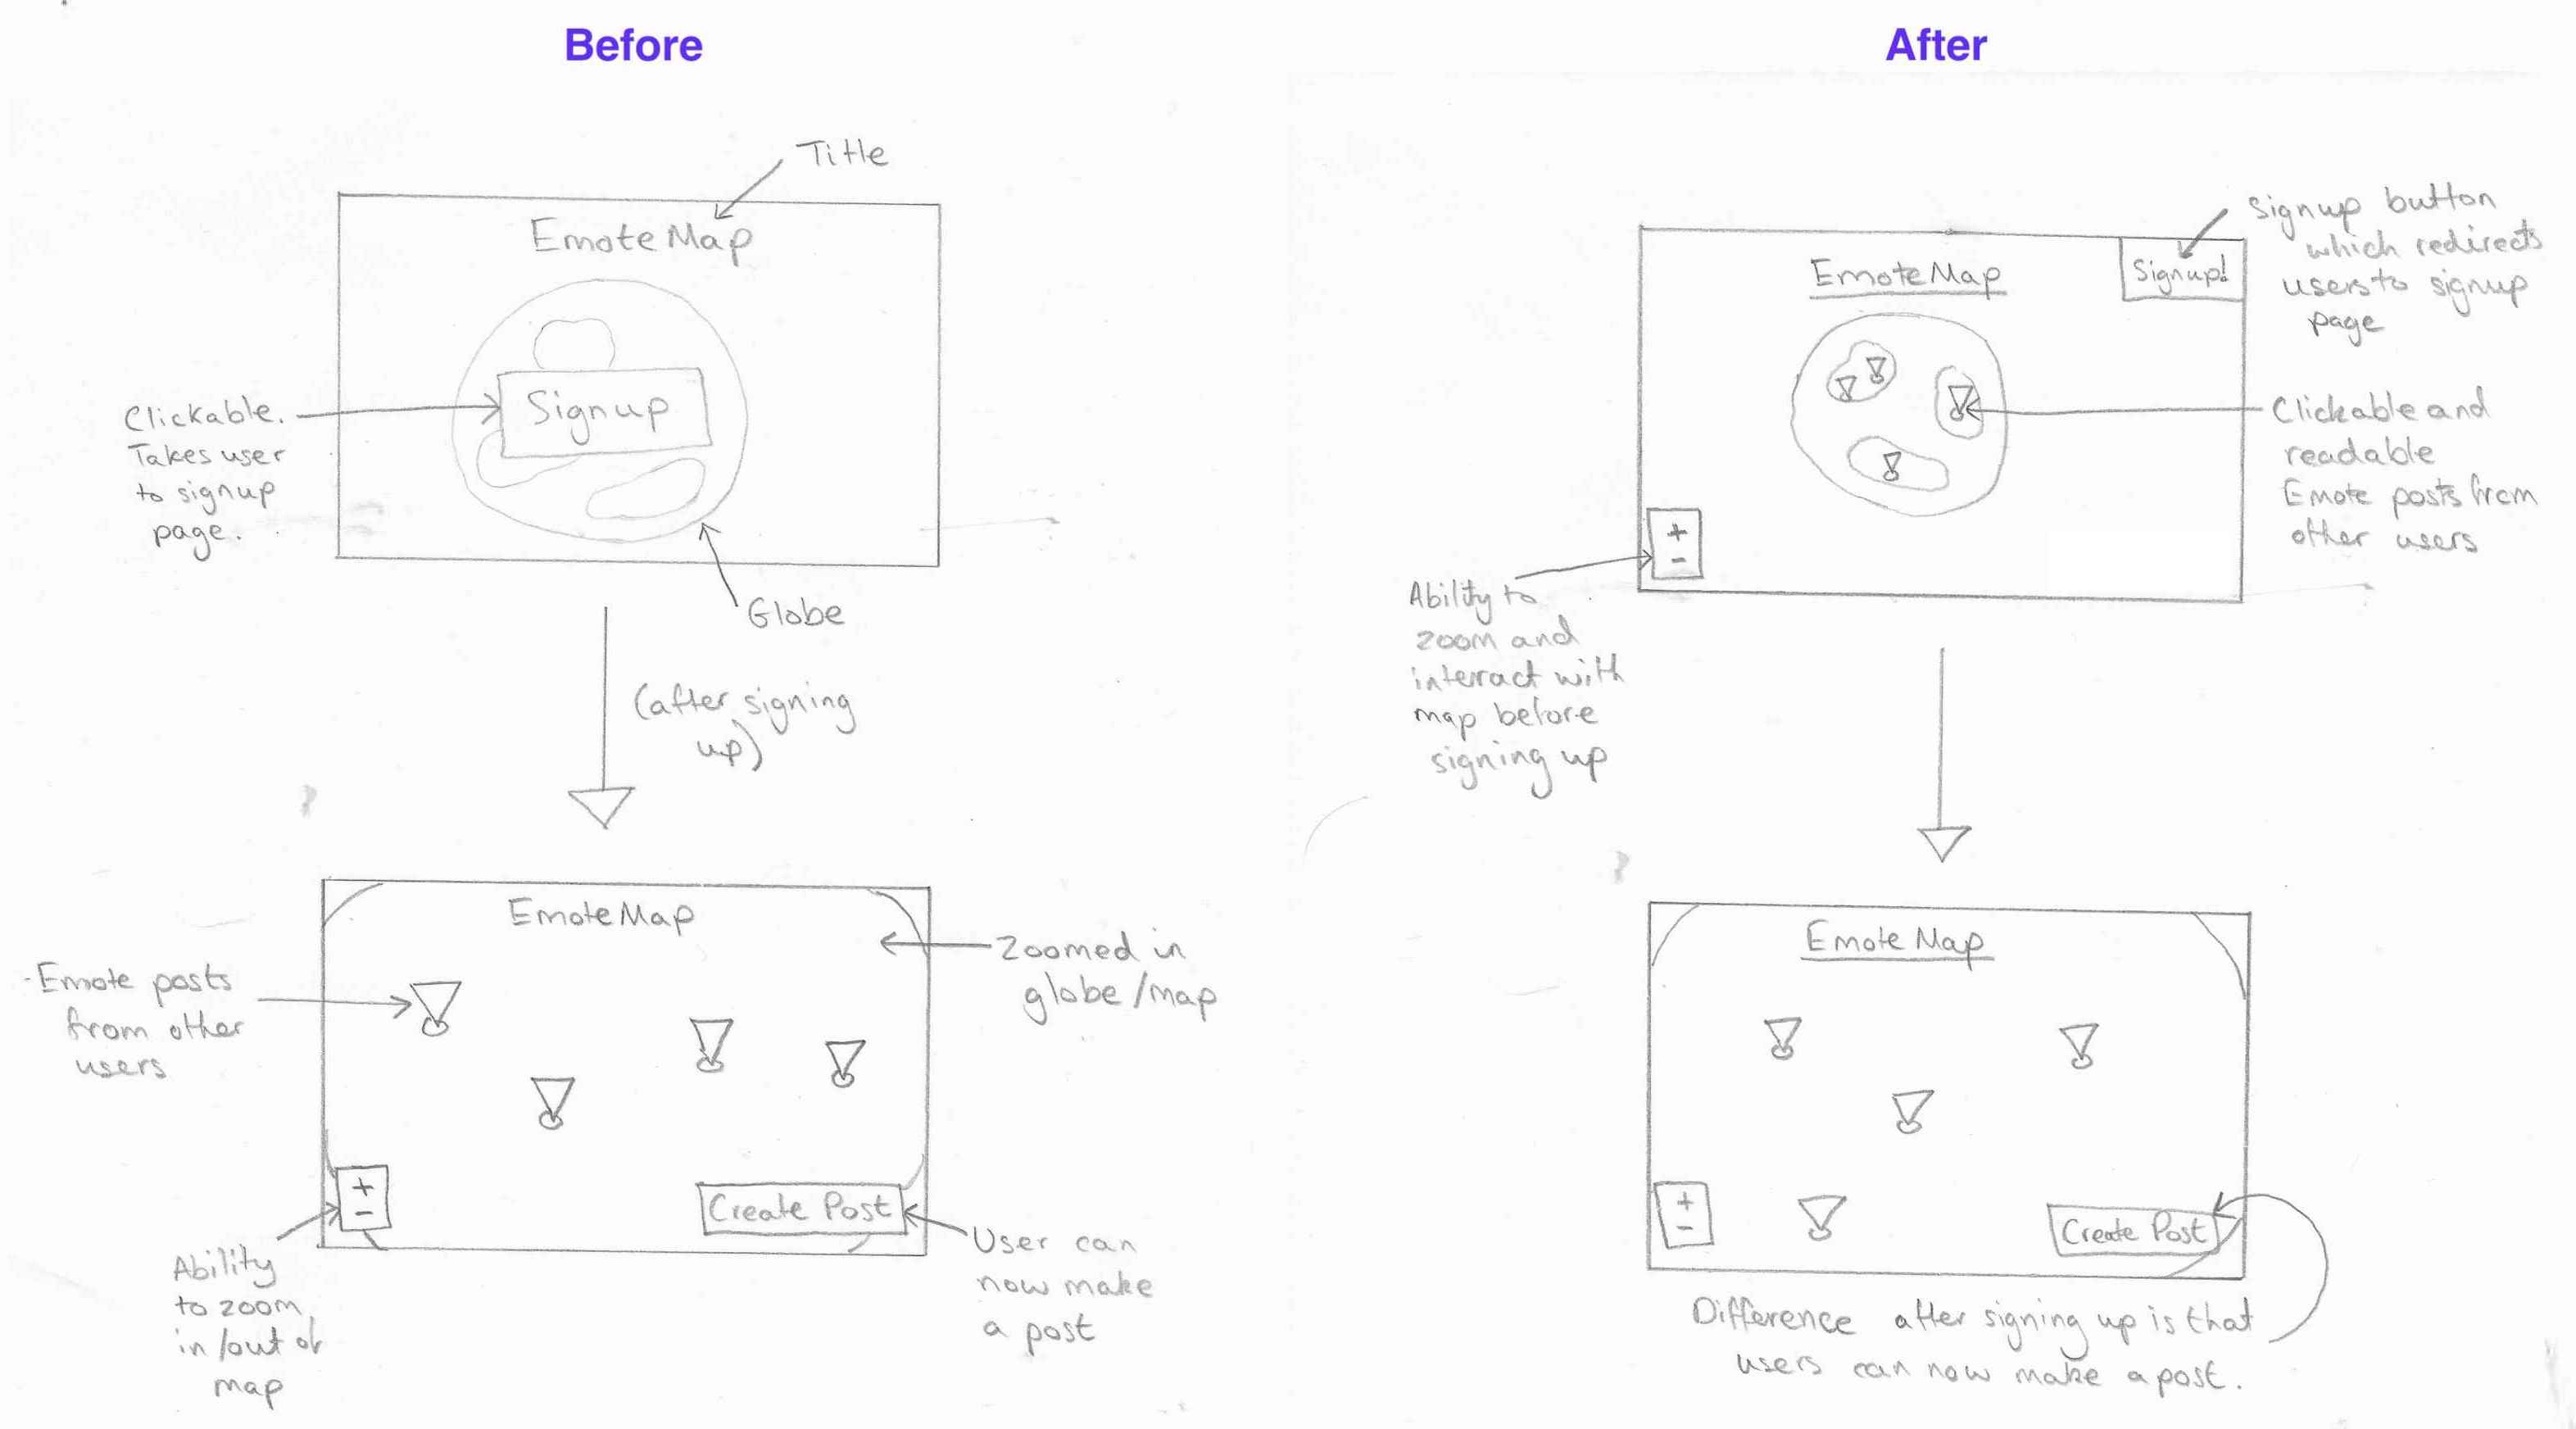 Before
Title
EmoteMap
Signup
Clickable.
Takes user
to signup
page.
Globe
(after signing
up)
EmoteMap
Emote posts
from other
users
Zoomed in
globe/map
+
-
Create Post
Ability
to zoom
in/out of
map
User can
now make
a post
After
Signup button
which redirects
users to signup
page
EmoteMap
Signup!
Clickable and
readable
Emote posts from
other users
+
-
Ability to
zoom and
interact with
map before
signing up
Emote Map
+
-
Create Post
Difference after signing up is that
users can now make a post.